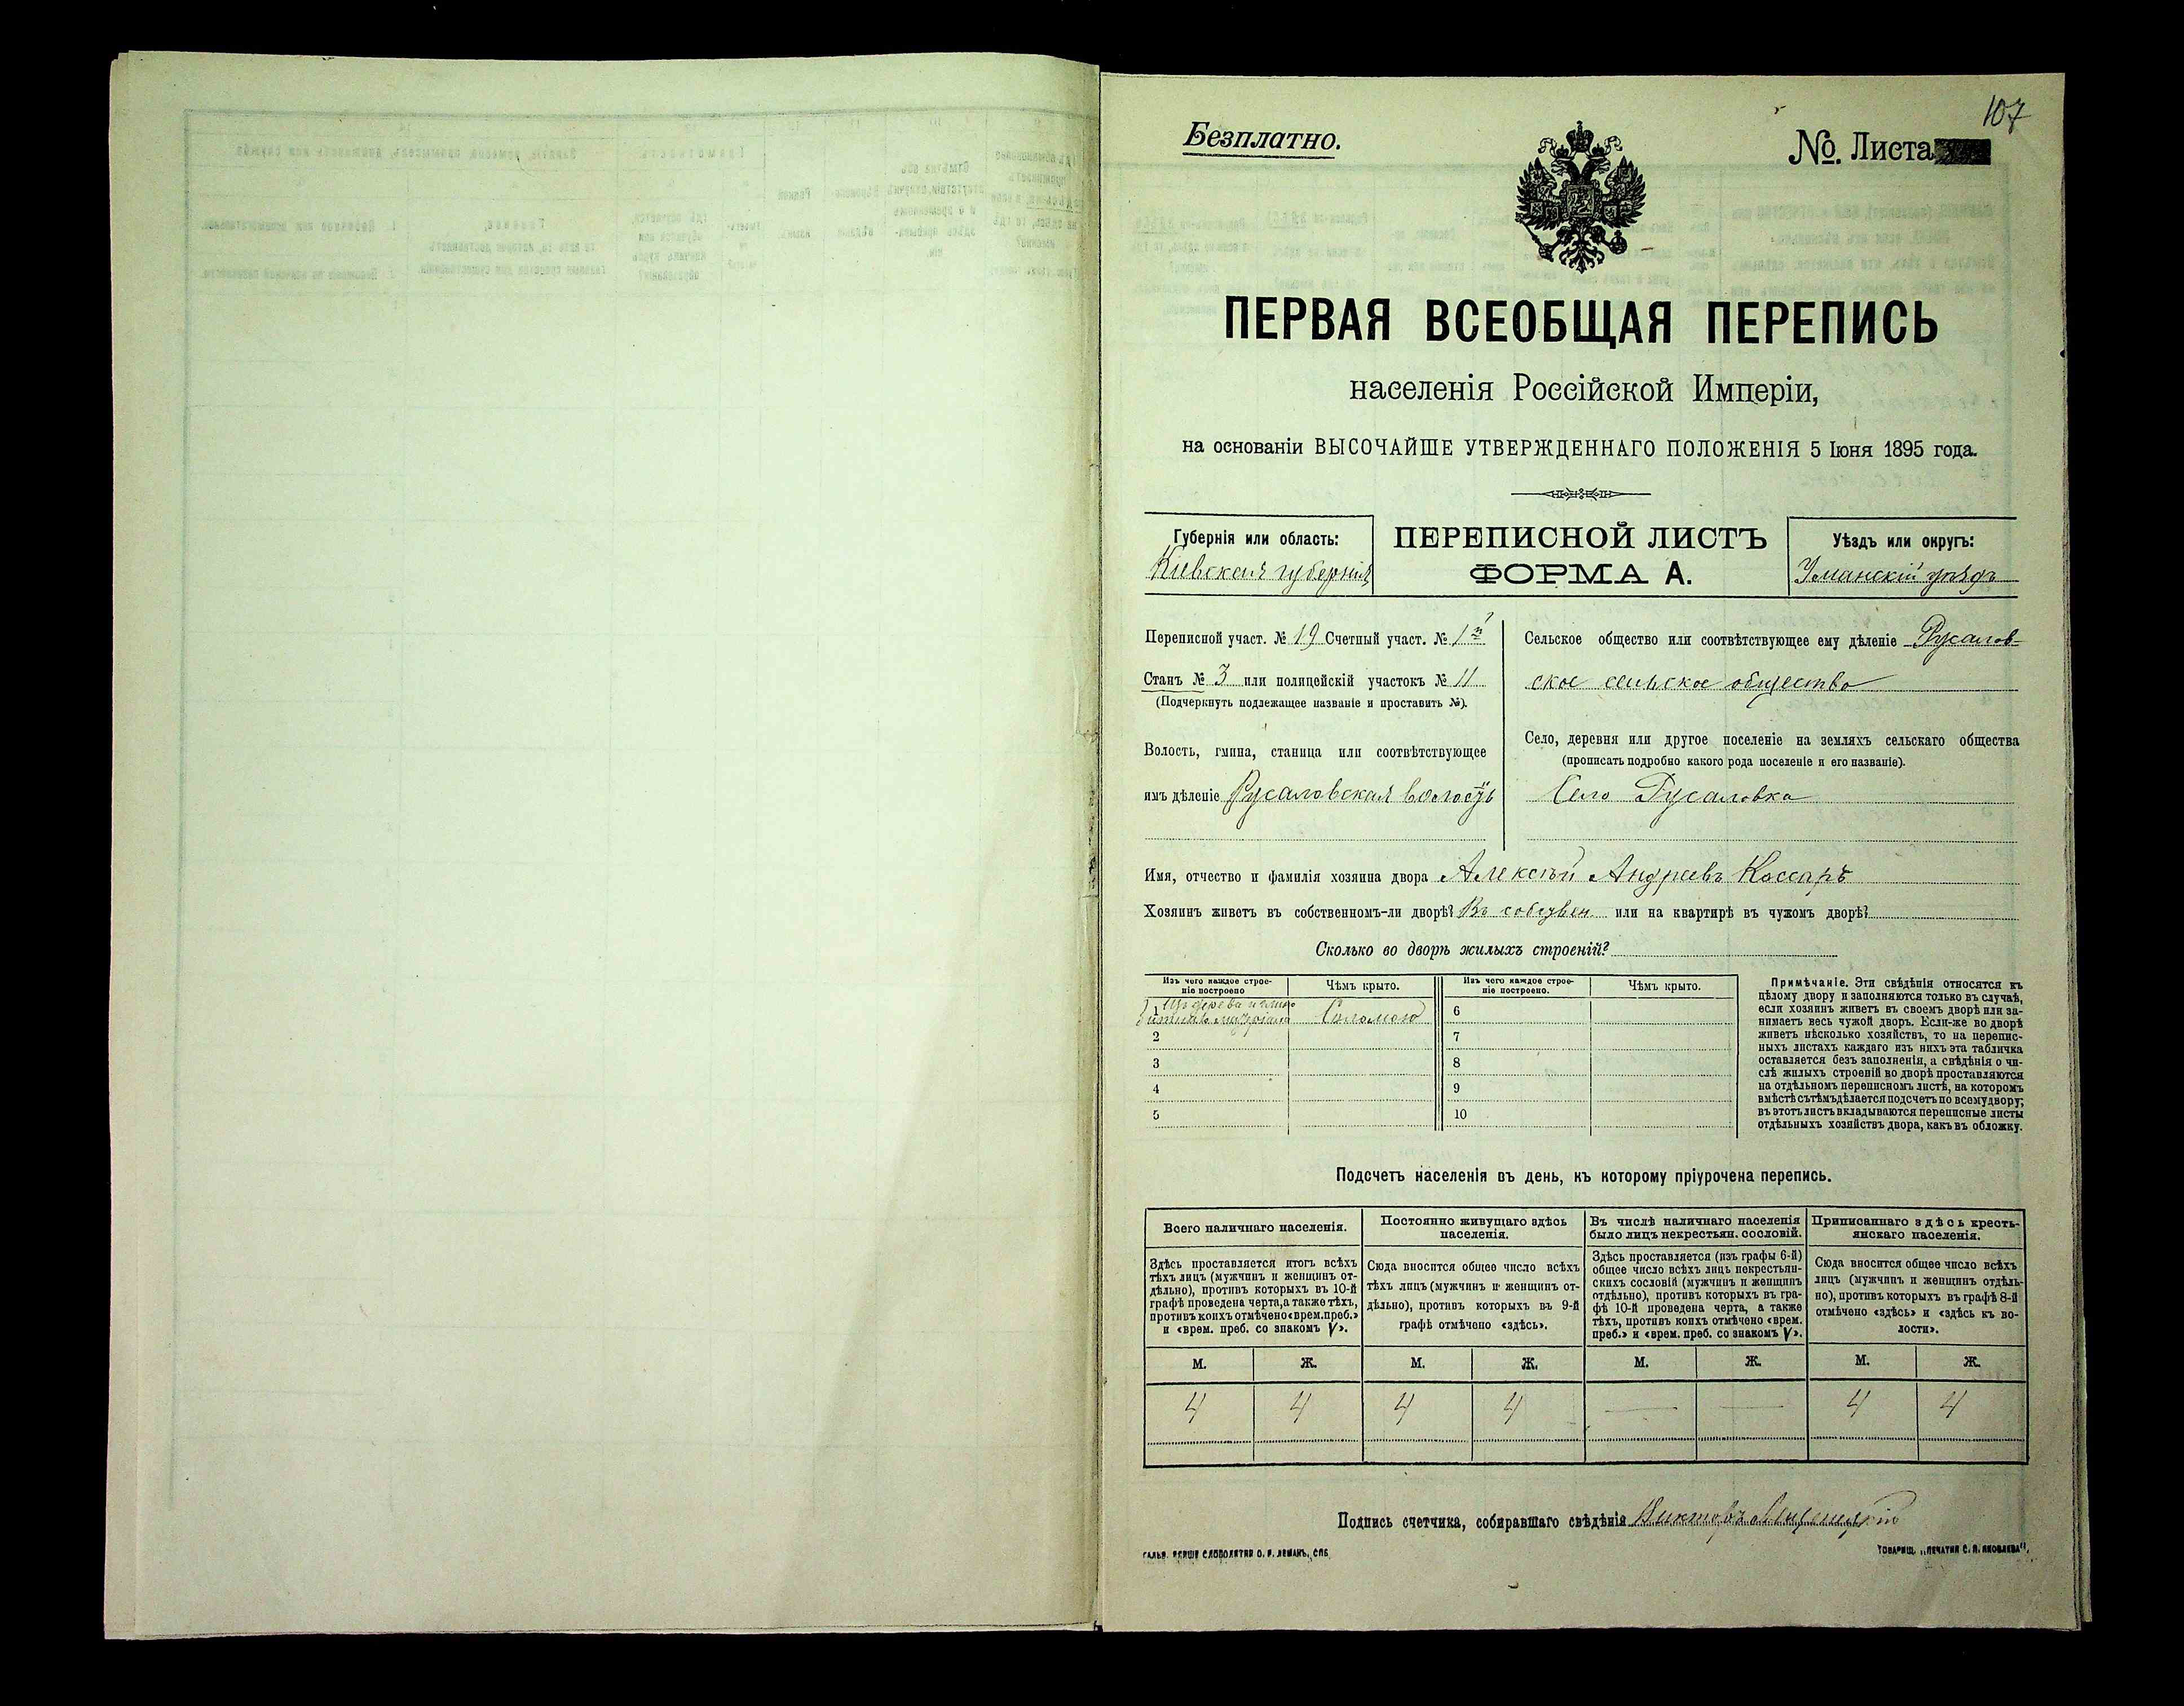 107
Безплатно.
№. Листа
ПЕРВАЯ ВСЕОБЩАЯ ПЕРЕПИСЬ
населенія Россійской Имперіи,
на основаніи ВЫСОЧАЙШЕ УТВЕРЖДЕННАГО ПОЛОЖЕНІЯ 5 Іюня 1895 года.
Губернія или область:
Кіевская губернія
ПЕРЕПИСНОЙ ЛИСТЪ
ФОРМА А.
Уѣздъ или округъ:
Уманскій уѣздъ
Переписной участ. № 19 Счетный участ. № 1й
Станъ № 3 или полицейскій участокъ № 11
(Подчеркнуть подлежащее названіе и проставить №).
Волость, гмина, станица или соотвѣтствующее
имъ дѣленіе Русаловская волость
Сельское общество или соотвѣтствующее ему дѣленіе Русалов-
ское сельское общество
Село, деревня или другое поселеніе на земляхъ сельскаго общества
(прописать подробно какого рода поселеніе и его названіе).
Село Русаловка
Имя, отчество и фамилія хозяина двора Алексѣй Андреевъ Коссаръ
Хозяинъ живетъ въ собственномъ-ли дворѣ? Въ собствен. или на квартирѣ въ чужомъ дворѣ?
Сколько во дворѣ жилыхъ строеній?
Изъ чего каждое строе-
ніе построено
Чѣмъ крыто.
Изъ чего каждое строе-
ніе построено.
Чѣмъ крыто.
1 Изъ дерева и
Соломою
6
2
7
3
8
4
9
5
10
Примѣчаніе. Эти свѣдѣнія относятся къ
цѣлому двору и заполняются только въ случаѣ,
если хозяинъ живетъ въ своемъ дворѣ или за-
нимаетъ весь чужой дворъ. Если-же во дворѣ
живетъ нѣсколько хозяйствъ, то на перепис-
ныхъ листахъ каждаго изъ нихъ эта табличка
оставляется безъ заполненія, а свѣдѣнія о чи-
слѣ жилыхъ строеній во дворѣ проставляются
на отдѣльномъ переписномъ листѣ, на которомъ
вмѣстѣ съ тѣмъ дѣлается подсчетъ по всему двору;
въ этотъ листъ вкладываются переписные листы
отдѣльныхъ хозяйствъ двора, какъ въ обложку.
Подсчетъ населенія въ день, къ которому пріурочена перепись.
Всего наличнаго населенія.
Здѣсь проставляется итогъ всѣхъ
тѣхъ лицъ (мужчинъ и женщинъ от-
дѣльно), противъ которыхъ въ 10-й
графѣ проведена черта, а также тѣхъ,
противъ коихъ отмѣчено «врем. преб.»
и «врем. преб. со знакомъ V».
Постоянно живущаго здѣсь
населенія.
Сюда вносится общее число всѣхъ
тѣхъ лицъ (мужчинъ и женщинъ от-
дѣльно), противъ которыхъ въ 9-й
графѣ отмѣчено «здѣсь».
Въ числѣ наличнаго населенія
было лицъ некрестьян. сословій.
Здѣсь проставляется (изъ графы 6-й)
общее число всѣхъ лицъ некрестьян-
скихъ сословій (мужчинъ и женщинъ
отдѣльно), противъ которыхъ въ гра-
фѣ 10-й проведена черта, а также
тѣхъ, противъ коихъ отмѣчено «врем.
преб.» и «врем. преб. со знакомъ V».
Приписаннаго здѣсь кресть-
янскаго населенія.
Сюда вносится общее число всѣхъ
лицъ (мужчинъ и женщинъ отдѣль-
но), противъ которыхъ въ графѣ 8-й
отмѣчено «здѣсь» и «здѣсь къ во-
лости».
М. Ж. М. Ж. М. Ж. М. Ж.
4 4 4 4 — — 4 4
Подпись счетчика, собиравшаго свѣдѣнія Викторъ
ТОВАРИЩ. „ПЕЧАТНЯ С. П. ЯКОВЛЕВА".